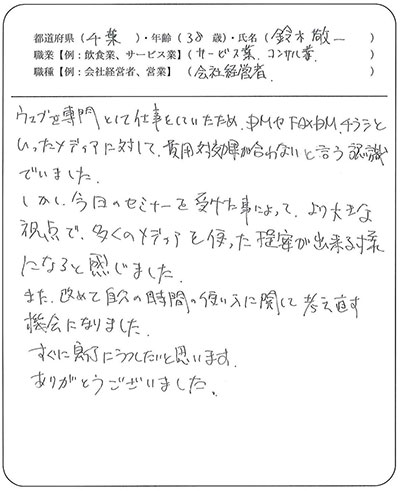 都道府県(千葉)・年齢(38歳)・氏名(鈴木敬一)
職業【例:飲食業、サービス業】(サービス業、コンサル業)
職種【例:会社経営者、営業】(会社経営者)
ウェブを専門として仕事としていたため、DMやFAXDM、チラシと
いったメディアに対して、費用対効果が合わないと言う認識
でいました。
しかし、今日のセミナーを受けた事によって、より大きな
視点で、多くのメディアを使った提案が出来る様
になると感じました。
また、改めて自分の時間の使い方に関して考え直す
機会になりました。
すぐに実行にうつしたいと思います。
ありがとうございました。